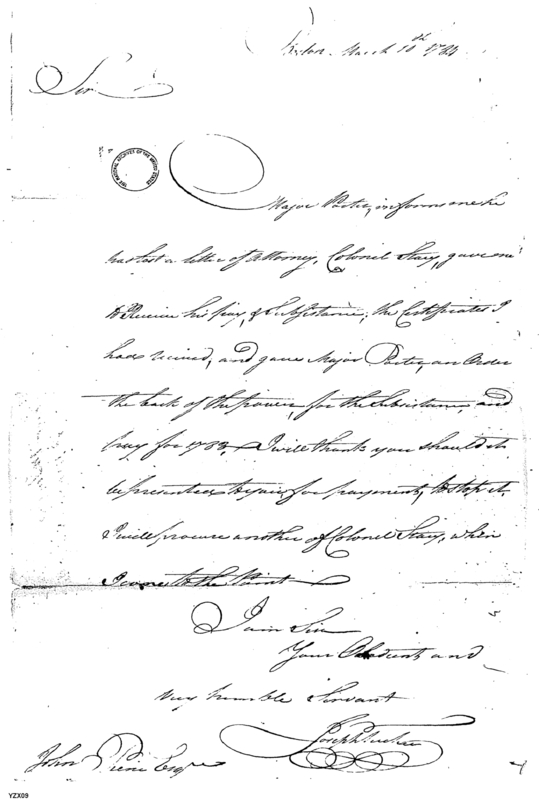 Boston March 10th 1784
Sir
THE NATIONAL ARCHIVES OF THE UNITED STATES
Major Porter, informs me he
has lost a letter of Attorney, Colonel Stacy, gave me
to Receive his pay, & Subsistance, the Certificates I
had recived, and gave Major Porter, an Order
the back of the power, for the Subsistance, and
pay for 1783, I will thank you should it
be presented to you for payment, to stop it
I will procure another of Colonel Stacy, when
I come to the Point
I am Sir
Your Obedient and
very humble Servant
Joseph
John Pierce Esqr
YZX09